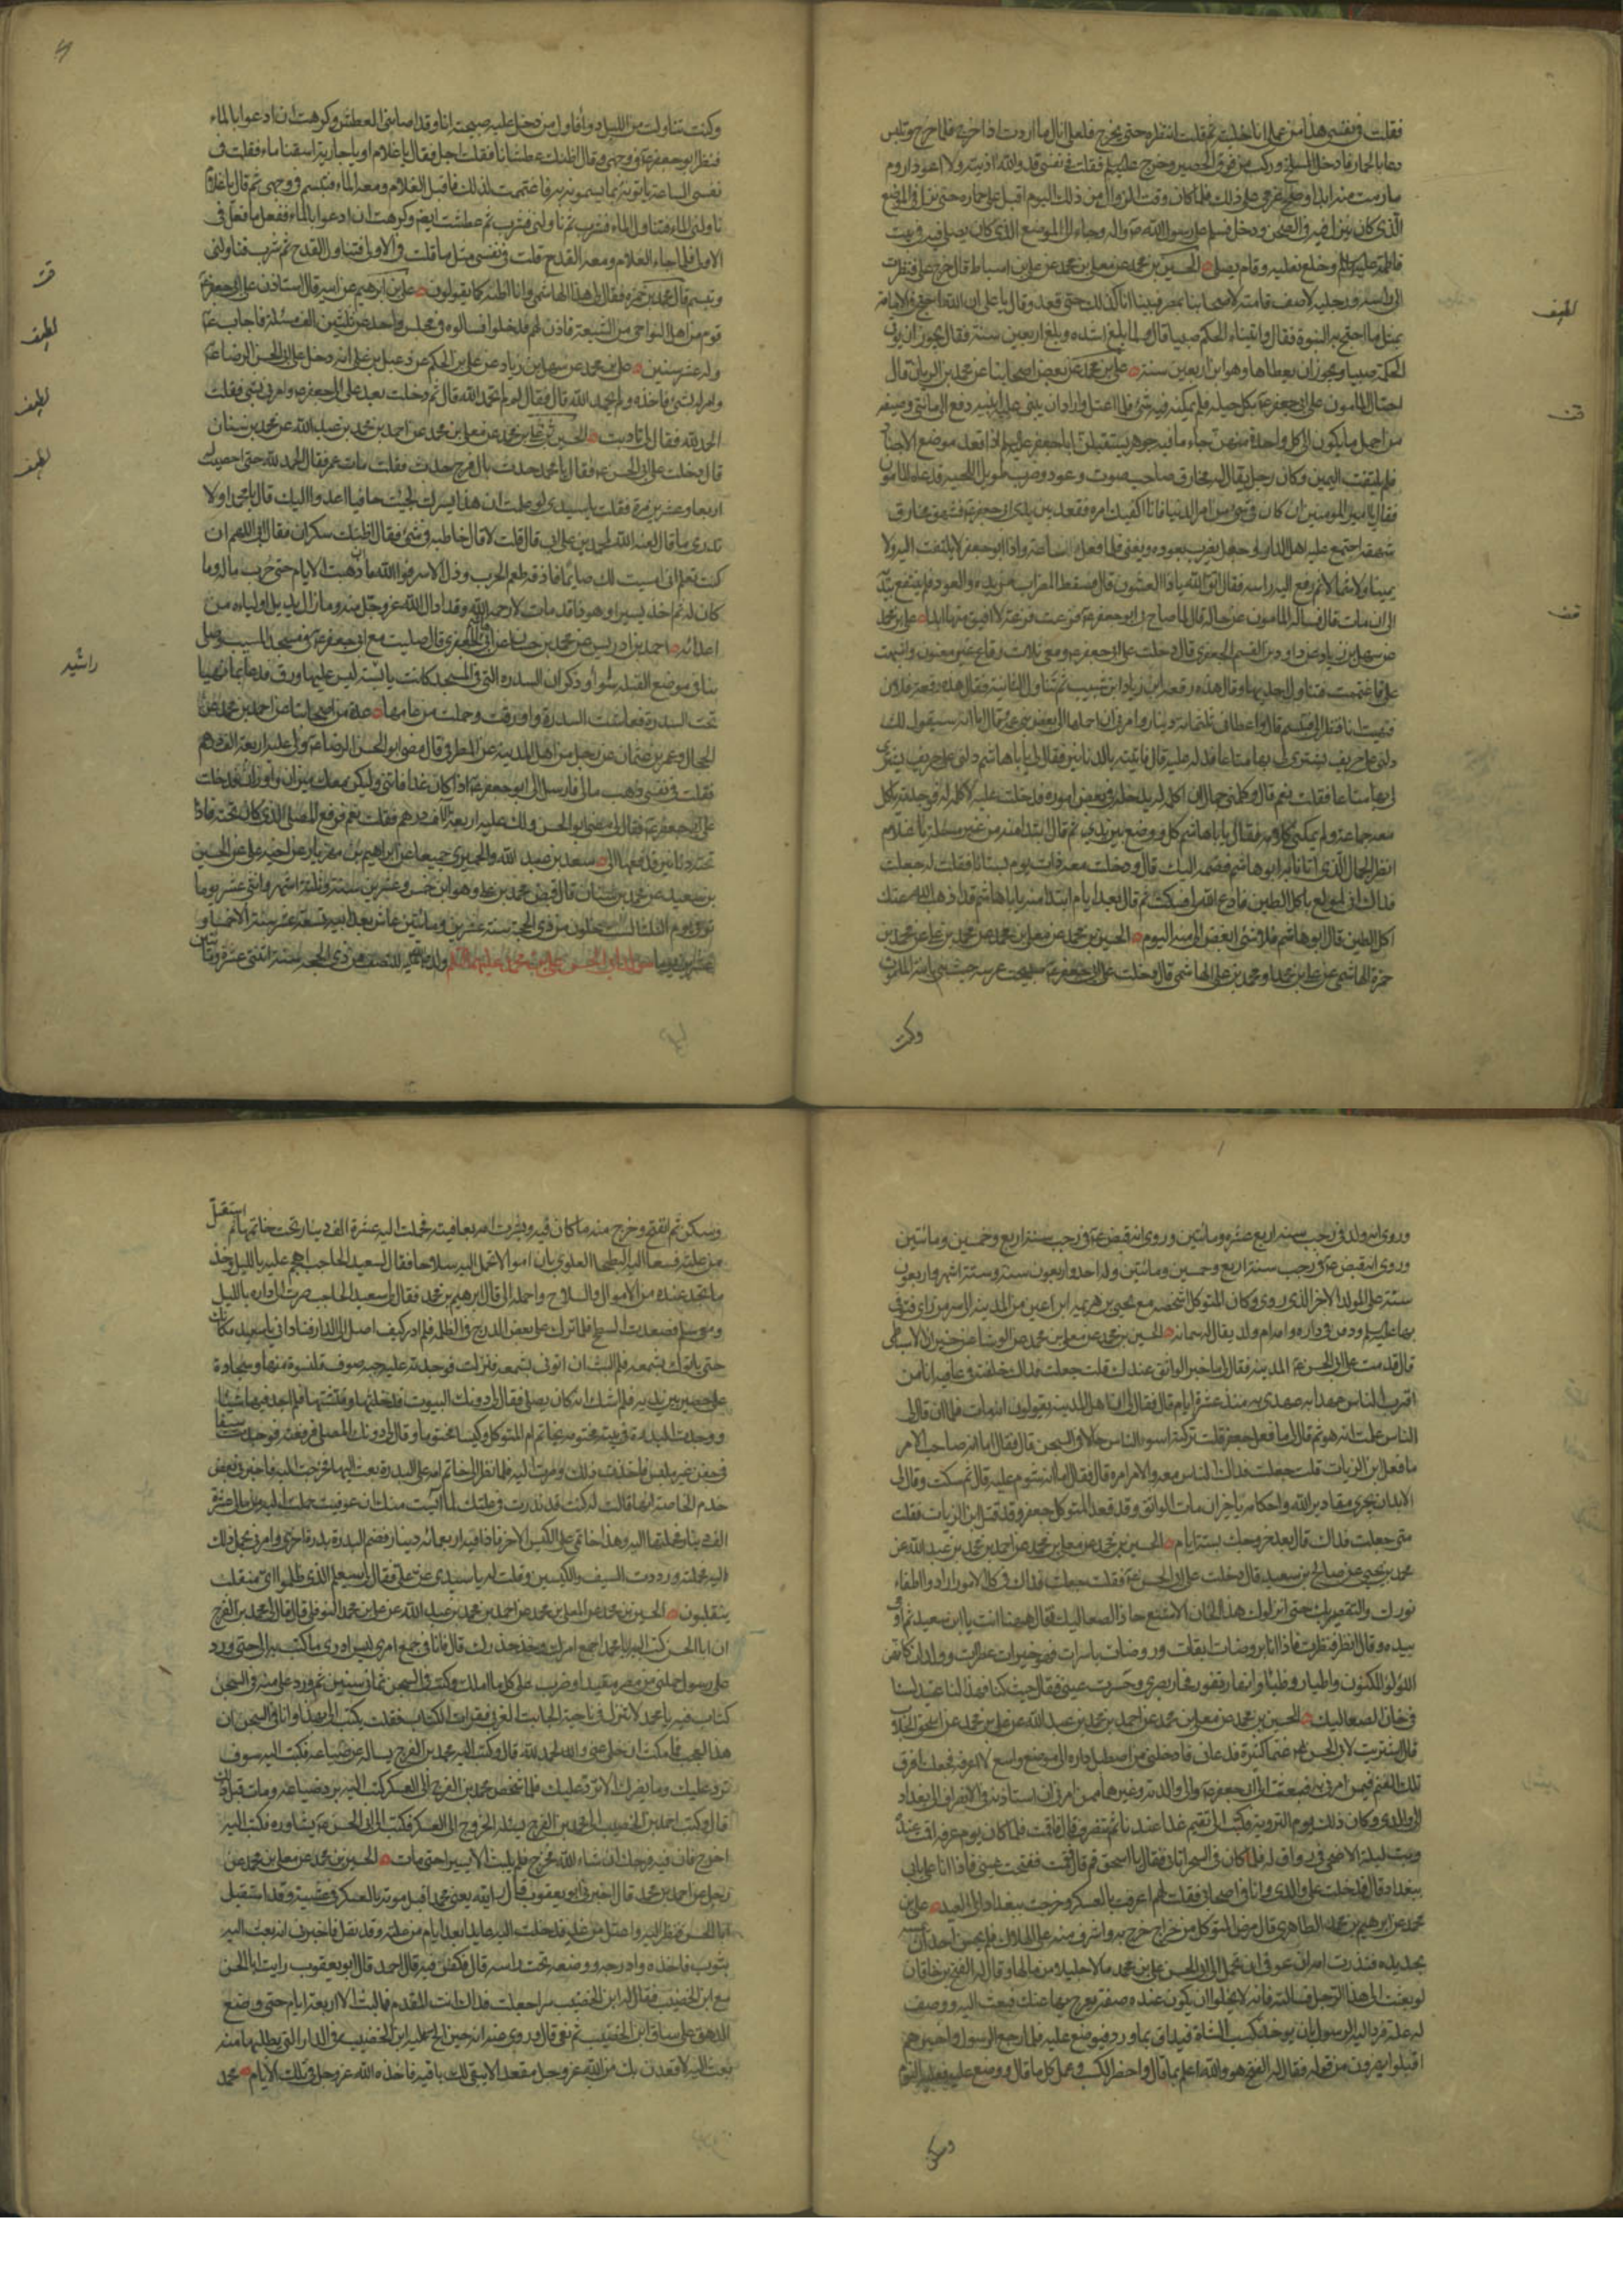 فقلت في نفسي هذا من عمل انا خلته ثم قلت انتظره حتى يخرج فلعلي انال ما اردت اذا خرج فلما خرج وتلبس
دعا بالحمار فادخل المسلخ وركب من فوق الحصير وخرج عليه السلم فقلت في نفسي قد والله اذيته ولا اعود اروم
ما رمت منه ابدا وصح عزمي على ذلك فلما كان وقت الزوال من ذلك اليوم اقبل على حماره حتى نزل في الموضع
الذي كان ينزل فيه في الصحن ودخل فسلم على رسول الله ص واله وجاء الى الموضع الذي كان يصلي فيه في بيت
فاطمة عليها السلم وخلع نعليه وقام يصلي الحسين بن محمد عن معلى بن محمد عن علي بن اسباط قال خرج علي فنظرت
الى راسه ورجليه لاصف قامته لاصحابنا بمصر فبينا انا كذلك حتى قعد وقال يا علي ان الله احتج في الامامة
بمثل ما احتج به النبوة فقال واتيناه الحكم صبيا قال ولما بلغ اشده وبلغ اربعين سنة فقال يجوز ان يؤتى
الحكمة صبيا ويجوز ان يعطاها وهو ابن اربعين سنة علي بن محمد عن بعض اصحابنا عن محمد بن الريان قال
احتال المامون على ابي جعفر ع بكل حيلة فلم يمكنه فيه شيء فلما اعتل واراد ان يبني عليه ابنته دفع الى مائتي وصيفة
من اجمل ما يكون الى كل واحدة منهن جاما فيه جوهر يستقبلن ابا جعفر عليه السلم اذا قعد موضع الاخيار
فلم يلتفت اليهن وكان رجل يقال له مخارق صاحب صوت وعود وضرب طويل اللحية فدعاه المامون
فقال يا امير المؤمنين ان كان في شيء من امر الدنيا فانا اكفيك امره فقعد بين يدي ابي جعفر ع فشهق مخارق
شهقة اجتمع عليه اهل الدار وجعل يضرب بعوده ويغني فلما فعل ساعة واذا ابو جعفر لا يلتفت اليه ولا
يمينا ولا شمالا ثم رفع اليه راسه فقال اتق الله يا ذا العثنون قال فسقط المضراب من يده والعود فلم ينتفع بيده
الى ان مات قال فساله المامون عن حاله قال لما صاح بي ابو جعفر ع فزعت فزعة لا افيق منها ابدا علي بن محمد
عن سهل بن زياد عن داود بن القسم الجعفري قال دخلت على ابي جعفر ع ومعي ثلاث رقاع غير معنونة واشتبهت
علي فاغتممت فتناول احديها وقال هذه رقعة زياد ابن شبيب ثم تناول الثانية فقال هذه رقعة فلان
فبهت انا فنظر الي فتبسم قال واعطاني ثلثمائة دينار وامرني ان احملها الى بعض بني عمه وقال اما انه سيقول لك
دلني على حريف يشتري لي بها متاعا فدله عليه قال فاتيته بالدنانير فقال لي يا با هاشم دلني على حريف يشتري
لي بها متاعا فقلت نعم قال وكلمني جمال ان اكلمه له يدخله في بعض اموره فدخلت عليه لاكلمه له فوجدته ياكل
معه جماعة ولم يمكني كلامه فقال يا با هاشم كل ووضع بين يدي ثم قال ابتداء منه من غير مسئلة يا غلام
انظر الجمال الذي اتانا به ابو هاشم فضمه اليك قال ودخلت معه ذات يوم بستانا فقلت له جعلت
فداك اني لمولع باكل الطين فادع الله لي فسكت ثم قال بعد ايام ابتداء منه يا با هاشم قد اذهب الله عنك
اكل الطين قال ابو هاشم فلا شيء ابغض الي منه اليوم الحسين بن محمد عن معلى بن محمد عن محمد بن علي عن محمد بن
حمزة الهاشمي عن علي بن محمد او محمد بن علي الهاشمي قال دخلت على ابي جعفر ع صبيحة عرسه حيث بنى بابنة المامون
وكنت
لطيف
وكنت تناولت من الليل دواء فاول من دخل عليه صبيحته انا وقد اصابني العطش وكرهت ان ادعوا بالماء
فنظر ابو جعفر ع في وجهي وقال اظنك عطشانا فقلت اجل فقال يا غلام او يا جارية اسقنا ماء فقلت في
نفسي الساعة ياتونه بما يسمونه به فاغتممت لذلك فاقبل الغلام ومعه الماء فتبسم في وجهي ثم قال يا غلام
ناولني الماء فتناول الماء فشرب ثم ناولني فشربت ثم عطشت ايضا وكرهت ان ادعوا بالماء ففعل ما فعل في
الاول فلما جاء الغلام ومعه القدح قلت في نفسي مثل ما قلت في الاول فتناول القدح ثم شرب فناولني
وتبسم قال محمد بن حمزة فقال لي هذا الهاشمي وانا اظنه كما يقولون علي بن ابرهيم عن ابيه قال استاذن على ابي جعفر ع
قوم من اهل النواحي من الشيعة فاذن لهم فدخلوا فسالوه في مجلس واحد عن ثلثين الف مسئلة فاجاب ع
وله عشر سنين علي بن محمد عن سهل بن زياد عن علي بن الحكم عن دعبل بن علي انه دخل على ابي الحسن الرضا ع
وامر له بشيء فاخذه ولم يحمد الله قال فقال له لم لم تحمد الله قال ثم دخلت بعد على ابي جعفر ع وامر لي بشيء فقلت
الحمد لله فقال لي تادبت الحسين بن محمد عن معلى بن محمد عن احمد بن محمد بن عبد الله عن محمد بن سنان
قال دخلت على ابي الحسن ع فقال يا محمد حدث بال فرج حدث فقلت مات عمر فقال الحمد لله حتى احصيت له
اربعا وعشرين مرة فقلت يا سيدي لو علمت ان هذا يسرك لجئت حافيا اعدوا اليك قال يا محمد اولا
تدري ما قال لعنه الله لمحمد بن علي ابي قال قلت لا قال خاطبه في شيء فقال اظنك سكران فقال ابي اللهم ان
كنت تعلم اني امسيت لك صائما فاذقه طعم الحرب وذل الاسر فوالله ان ذهبت الايام حتى حرب ماله وما
كان له ثم اخذ يسيرا وهو ذا قد مات لا رحمه الله وقد ادال الله عز وجل منه وما زال يديل اولياءه من
اعدائه احمد بن ادريس عن محمد بن حسان عن ابي هاشم الجعفري قال صليت مع ابي جعفر ع في مسجد المسيب وصلى
بنا في موضع القبلة سواء وذكر ان السدرة التي في المسجد كانت يابسة ليس عليها ورق فدعا بماء وتهيا
تحت السدرة فعاشت السدرة واورقت وحملت من عامها عدة من اصحابنا عن احمد بن محمد عن
الحجال وعمرو بن عثمان عن رجل من اهل المدينة عن المطرفي قال مضى ابو الحسن الرضا ع ولي عليه اربعة الف درهم
فقلت في نفسي ذهب مالي فارسل الي ابو جعفر ع اذا كان غدا فاتني وليكن معك ميزان واوزان فدخلت
على ابي جعفر ع فقال لي مضى ابو الحسن ولك عليه اربعة الاف درهم فقلت نعم فرفع المصلى الذي كان تحته فاذا
تحته دنانير فدفعها الي سعد بن عبد الله والحميري جميعا عن ابراهيم بن مهزيار عن اخيه علي عن الحسين
بن سعيد عن محمد بن سنان قال قبض محمد بن علي وهو ابن خمس وعشرين سنة وثلثة اشهر واثني عشر يوما
توفي يوم الثلثا لست خلون من ذي الحجة سنة عشرين ومائتين عاش بعد ابيه تسعة عشر سنة الا خمسا و
عشرين يوما مولد ابي الحسن علي بن محمد عليهما السلم ولد عليه السلم للنصف من ذي الحجة سنة اثنتي عشرة ومائتين
لطيف
لطيف
لطيف
راشيد
وروي انه ولد في رجب سنة اربع عشرة ومائتين وروي انه قبض ع في رجب سنة اربع وخمسين ومائتين
وروي انه قبض ع في رجب سنة اربع وخمسين ومائتين وله احد واربعون سنة وستة اشهر واربعون
سنة على المولد الاخر الذي روي وكان المتوكل اشخصه مع يحيى بن هرثمة ابن اعين من المدينة الى سر من راي فتوفي
بها عليه السلم ودفن في داره وامه ام ولد يقال لها سمانة الحسين بن محمد عن معلى بن محمد عن الوشا عن خيران الاسباطي
قال قدمت على ابي الحسن ع المدينة فقال لي ما خبر الواثق عندك قلت جعلت فداك خلفته في عافية انا من
اقرب الناس عهدا به عهدي به منذ عشرة ايام قال فقال لي ان اهل المدينة يقولون انه مات فلما ان قال لي
الناس علمت انه هو ثم قال لي ما فعل جعفر قلت تركته اسوء الناس حالا في السجن قال فقال اما انه صاحب الامر
ما فعل ابن الزيات قلت جعلت فداك الناس معه والامر امره قال فقال اما انه شوم عليه قال ثم سكت وقال لي
لا بد ان يجري مقادير الله واحكامه يا خيران مات الواثق وقد قعد المتوكل جعفر وقد قتل ابن الزيات فقلت
متى جعلت فداك قال بعد خروجك بستة ايام الحسين بن محمد عن معلى بن محمد عن احمد بن محمد بن عبد الله عن
محمد بن يحيى عن صالح بن سعيد قال دخلت على ابي الحسن ع فقلت جعلت فداك في كل الامور ارادوا اطفاء
نورك والتقصير بك حتى انزلوك هذا الخان الاشنع خان الصعاليك فقال هيهنا انت يا ابن سعيد ثم اومى
بيده وقال انظر فنظرت فاذا انا بروضات انقات وروضات باسرات فيهن خيرات عطرات وولدان كانهن
اللؤلؤ المكنون واطيار وظباء وانهار تفور فحار بصري وحسرت عيني فقال حيث كنا فهذا لنا عتيد لسنا
في خان الصعاليك الحسين بن محمد عن معلى بن محمد عن احمد بن محمد بن عبد الله عن علي بن محمد عن اسحق الجلاب
قال اشتريت لابي الحسن ع غنما كثيرة فدعاني فادخلني من اصطبل داره الى موضع واسع لا اعرفه فجعلت افرق
تلك الغنم فيمن امرني به فبعثت الى ابي جعفر ع والى والدته وغيرهما ممن امرني ثم استاذنته في الانصراف الى بغداد
الى والدي وكان ذلك يوم التروية فكتب الي تقيم غدا عندنا ثم تنصرف قال فاقمت فلما كان يوم عرفة اقمت عنده
وبت ليلة الاضحى في رواق له فلما كان في السحر اتاني فقال يا اسحق قم قال فقمت ففتحت عيني فاذا انا على بابي
ببغداد قال فدخلت على والدي وانا في اصحابي فقلت لهم عرفت بالعسكر وخرجت ببغداد الى العيد علي بن
محمد عن ابرهيم بن محمد الطاهري قال مرض المتوكل من خراج خرج به واشرف منه على الهلاك فلم يجسر احد ان يمسه
بحديدة فنذرت امه ان عوفي ان تحمل الى ابي الحسن علي بن محمد مالا جليلا من مالها وقال له الفتح بن خاقان
لو بعثت الى هذا الرجل فسالته فانه لا يخلوا ان يكون عنده صفة يفرج بها عنك فبعث اليه ووصف
له علته فرد اليه الرسول بان يوخذ كسب الشاة فيداف بماء ورد فيوضع عليه فلما رجع الرسول واخبرهم
اقبلوا يهزءون من قوله فقال له الفتح هو والله اعلم بما قال واحضر الكسب وعمل كما قال ووضع عليه فغلبه النوم
وسكن
وسكن ثم انفتح وخرج منه ما كان فيه وبشرت امه بعافيته فحملت اليه عشرة الف دينار تحت خاتمها ثم استقل
من علته فسعى اليه البطحا العلوي بان اموالا تحمل اليه وسلاحا فقال لسعيد الحاجب اهجم عليه بالليل وخذ
ما تجد عنده من الاموال والسلاح واحمله الي قال ابرهيم بن محمد فقال لي سعيد الحاجب صرت الى داره بالليل
ومعي سلم فصعدت السطح فلما نزلت على بعض الدرج في الظلمة فلم ادر كيف اصل الى الدار فناداني يا سعيد مكانك
حتى ياتوك بشمعة فلم البث ان اتوني بشمعة فنزلت فوجدته عليه جبة صوف وقلنسوة منها وسجادة
على حصير بين يديه فلم اشك انه كان يصلي فقال لي دونك البيوت فدخلتها وفتشتها فلم اجد فيها شيئا
ووجدت البدرة في بيته مختومة بخاتم ام المتوكل وكيسا مختوما وقال لي دونك المصلى فرفعته فوجدت سيفا
في جفن غير ملبس فاخذت ذلك وصرت اليه فلما نظر الى خاتم امه على البدرة بعث اليها فخرجت اليه فاخبرني بعض
خدم الخاصة انها قالت له كنت قد نذرت في علتك لما ايست منك ان عوفيت حملت اليه من مالي عشرة
الف دينار فحملتها اليه وهذا خاتمي على الكيس وفتح الاخر فاذا فيه اربعمائة دينار فضم الى البدرة بدرة اخرى وامرني بحمل ذلك
اليه فحملته ورددت السيف والكيسين وقلت له يا سيدي عز علي فقال لي سيعلم الذين ظلموا اي منقلب
ينقلبون الحسين بن محمد عن المعلى بن محمد عن احمد بن محمد بن عبد الله عن علي بن محمد النوفلي قال قال لي محمد بن الفرج
ان ابا الحسن كتب اليه يا محمد اجمع امرك وخذ حذرك قال فانا في جمع امري ليس ادري ما كتب به الي حتى ورد
علي رسول حملني من مصر مقيدا وضرب على كل ما املك وكنت في السجن ثمان سنين ثم ورد علي منه في السجن
كتاب فيه يا محمد لا تنزل في ناحية الجانب الغربي فقرات الكتاب فقلت يكتب الي بهذا وانا في السجن ان
هذا لعجب فما مكثت ان خلي عني والله الحمد لله قال وكتب اليه محمد بن الفرج يساله عن ضياعه فكتب اليه سوف
ترد عليك وما يضرك الا ترد عليك فلما شخص محمد بن الفرج الى العسكر كتب اليه برد ضياعه ومات قبل ذلك
قال وكتب احمد بن الخضيب الى محمد بن الفرج يسئله الخروج الى العسكر فكتب الى ابي الحسن ع يشاوره فكتب اليه
اخرج فان فيه فرجك ان شاء الله فخرج فلم يلبث الا يسيرا حتى مات الحسين بن محمد عن معلى بن محمد عن
رجل عن احمد بن محمد قال اخبرني ابو يعقوب قال رايته يعني محمدا قبل موته بالعسكر في عشية وقد استقبل
ابا الحسن فنظر اليه واعتل من غد فدخلت اليه عائدا بعد ايام من علته وقد ثقل فاخبرني انه بعث اليه
بثوب فاخذه وادرجه ووضعه تحت راسه قال فكفن فيه قال احمد قال ابو يعقوب رايت ابا الحسن
مع ابن الخضيب فقال له ابن الخضيب سر جعلت فداك انت المقدم فما لبث الا اربعة ايام حتى وضع
الدهق على ساق ابن الخضيب ثم نعي قال وروي عنه انه حين الح عليه ابن الخضيب في الدار التي يطلبها منه
بعث اليه لاقعدن بك من الله عز وجل مقعدا لا يبقى لك باقية فاخذه الله عز وجل في تلك الايام محمد